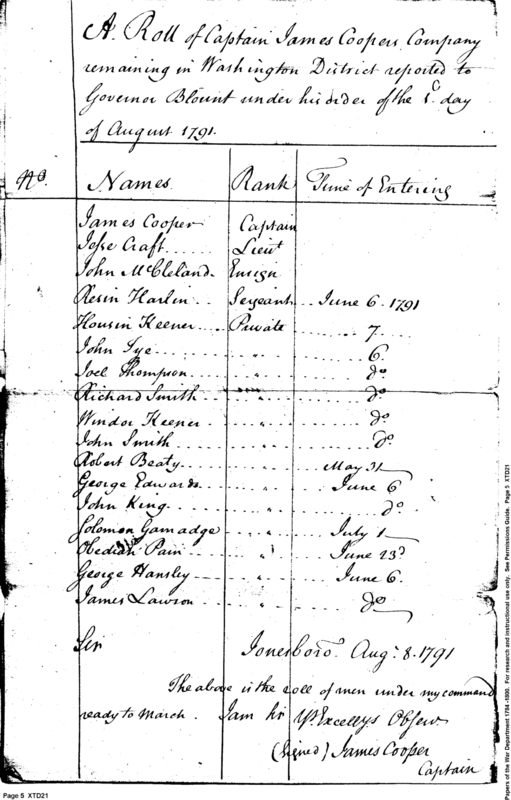 A Roll of Captain James Coopers Company
remaining in Washington District reported to
Governor Blount under his order of the 1st day
of August 1791.
No. Names Rank Time of Entering
James Cooper Captain
Jesse Craft Lieut
John McCleland Ensign
Resin Harlin Sergeant June 6. 1791
Housin Keener Private 7
John Tye " 6.
Joel Thompson " do
Richard Smith " do
Windor Keener " do
John Smith " do
Robert Beaty " May 31
George Edwards " June 6
John King " do
Solomon Gamadge " July 1
Obediah Pain " June 23d
George Hansley " June 6.
James Lawson " do
Sir Jonesboro. Augt. 8. 1791
The above is the roll of men under my command
ready to march. I am Sir Yr. Excellys Obser.
(Signed) James Cooper
Captain
Page 5 XTD21
Papers of the War Department 1784-1800. For research and instructional use only. See Permissions Guide. Page 5 XTD21